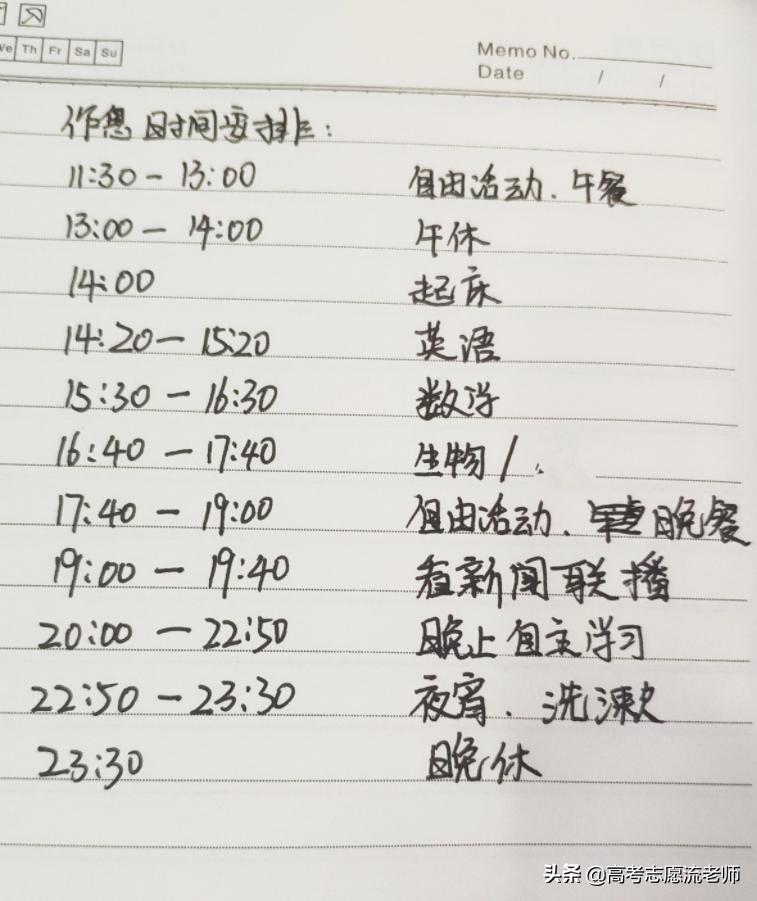 We Th Fr Sa Su
Memo No.
Date / /
作息时间安排：
11:30 — 13:00 自由活动、午餐
13:00 — 14:00 午休
14:00 起床
14:20 — 15:20 英语
15:30 — 16:30 数学
16:40 — 17:40 生物 /
17:40 — 19:00 自由活动、晚餐
19:00 — 19:40 看新闻联播
20:00 — 22:50 晚上自主学习
22:50 — 23:30 夜宵、洗漱
23:30 晚休
头条 @高考志愿流老师